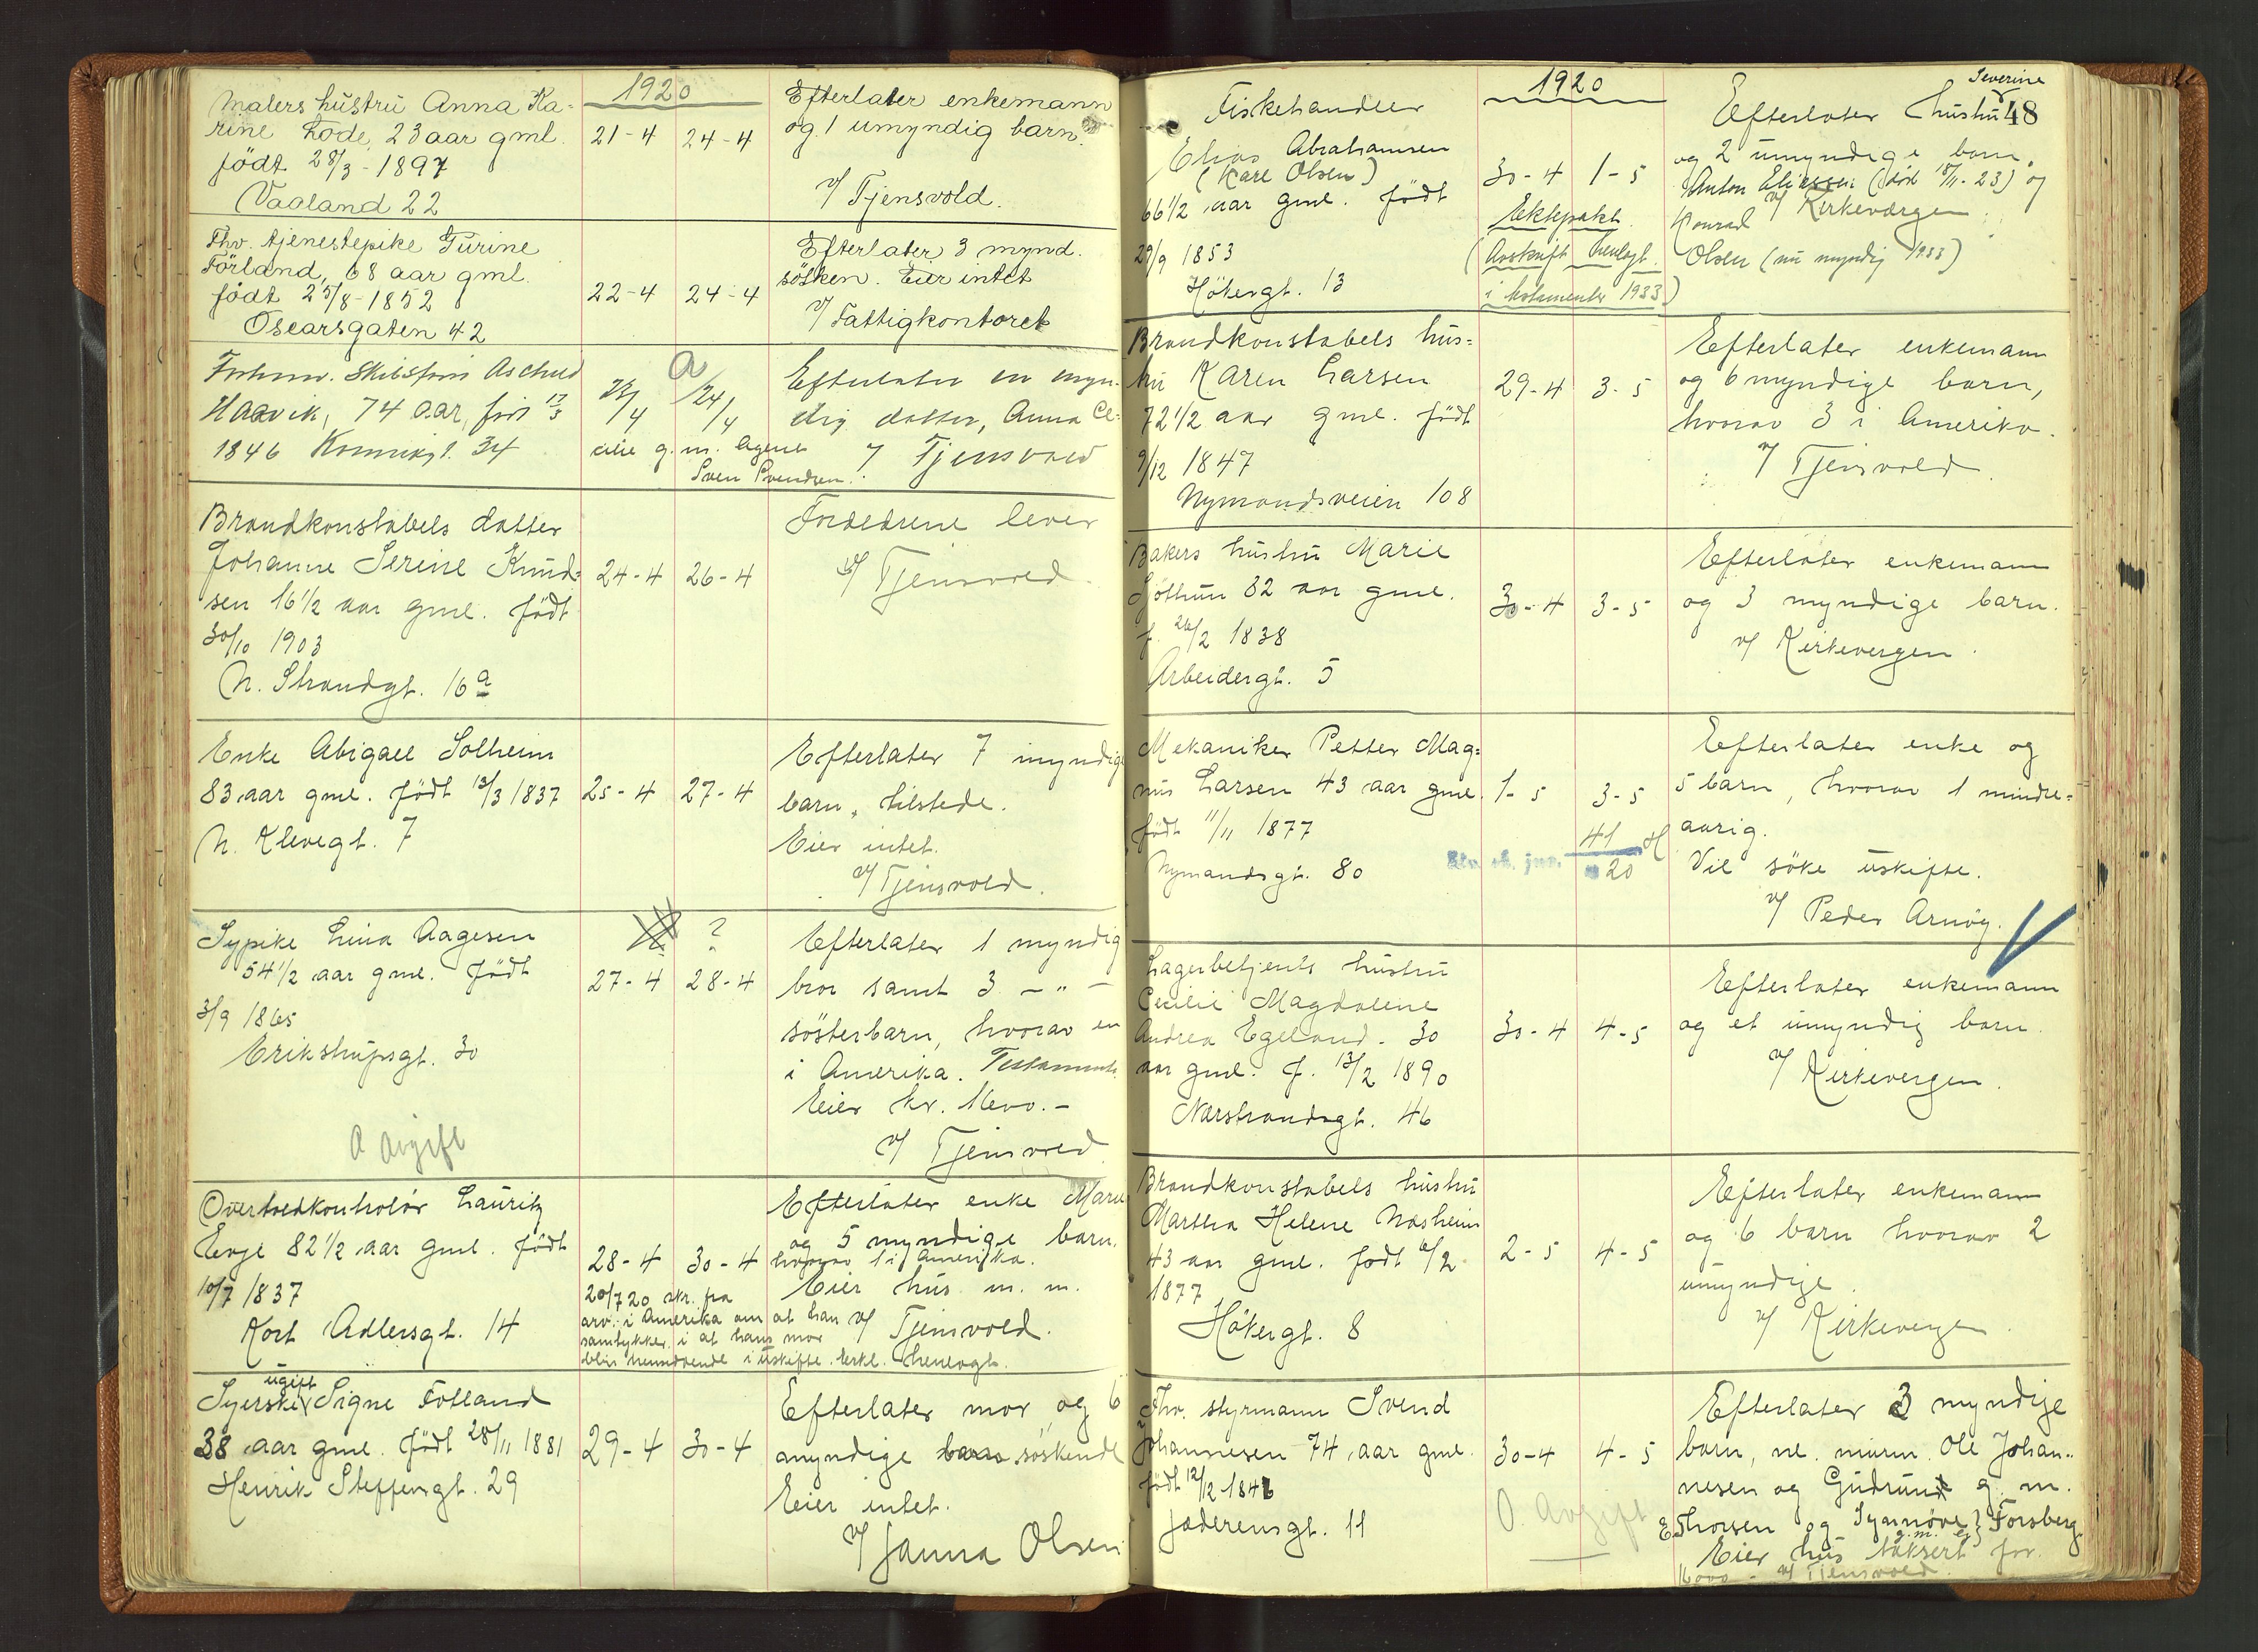 1920
Malers hustru Anna Ka-
rine Lode, 23 aar gml.
født 28/3-1897
Vaaland 22
21-4 24-4
Efterlater enkemann
og 1 umyndig barn.
v/ Tjensvold.
Fhv. tjenestepike Gurine
Förland, 68 aar gml.
født 25/8-1852
Oscarsgaten 42
22-4 24-4
Efterlater 3 mynd.
sösken. Eier intet
v/ Fattigkontoret
Haavik, 74 aar, født 17/3
1846 34
a
23/4 24/4
Efterlater en myn-
dig datter, Anna Ce-
cilie g. m. Agent
Sven Svendsen.
v/ Tjensvold
Brandkonstabels datter
Johanne Serine Knud-
sen 16 1/2 aar gml. født
30/10 1903
N. Strandgt. 16 a
24-4 26-4
Foreldrene lever
v/ Tjensvold.
Enke Abigael Solheim
83 aar gml. født 13/3 1837
N. Klevegt. 7
25-4 27-4
Efterlater 7 myndige
barn, tilstede.
Eier intet.
v/ Tjensvold.
Sypike Lina Aagesen
54 1/2 aar gml. født
3/9 1865
Erikstrupsgt. 30
0 Avgift
?
27-4 28-4
Efterlater 1 myndig
bror samt 3 - " -
sösterbarn, hvorav en
i Amerika. Testament.
Eier kr.
v/ Tjensvold
Overtoldkontrolör Lauritz
Evje 82 1/2 aar gml. født
10/7 1837
Kort Adlersgt. 14
28-4 30-4
Efterlater enke Marie
og 5 myndige barn.
hvorav 1 i Amerika.
Eier hus m. m.
v/ Tjensvold.
20/7 20 skr. fra
arv. i Amerika om at han
samtykker i at hans mor
blir hensittende i uskifte. Erkl. henlagt.
Syerske ugift Signe Folland
38 aar gml. født 28/11 1881
Henrik Steffensgt. 29
29-4 30-4
Efterlater mor og 6
myndige barn söskende
Eier intet.
v/ Janna Olsen
1920
48
Fiskehandler
Elias Abrahamsen
(Kare Olsen)
66 1/2 aar gml. født
29/9 1853
Hökergt. 13
30-4 1-5
Ektepakt.
(Avskrift henlagt
i testamenter 1933)
Severine
Efterlater hustru
og 2 umyndige barn.
Anton Eliassen (död 18/11-23) og
v/ Kirkeværgen
Konrad
Olsen (nu myndig 1933)
Brandkonstabels hus-
tru Karen Larsen
72 1/2 aar gml. født
9/12 1847
Nymandsveien 108
29-4 3-5
Efterlater enkemann
og 6 myndige barn,
hvorav 3 i Amerika.
v/ Tjensvold
Bakers hustru Marie
Sjöthun 82 aar gml.
f. 26/2 1838
Arbeidergt. 5
30-4 3-5
Efterlater enkemann
og 3 myndige barn.
v/ Kirkevergen.
Mekaniker Petter Mag-
nus Larsen 43 aar gml.
født 11/11 1877
Nymandsgt. 80
1-5 3-5
41
20
Efterlater enke og
5 barn, hvorav 1 mindre-
aarig.
Vil söke uskifte.
v/ Peder Arnöy.
Lagerbetjents hustru
Cecilie Magdalene
Andrea Egeland. 30
aar gml. f. 13/2 1890
Nærstrandsgt. 46
30-4 4-5
Efterlater enkemann
og et umyndig barn.
v/ Kirkevergen.
Brandkonstabels hustru
Martha Helene Næsheim
43 aar gml. født 6/2
1877
Hökergt. 8
2-5 4-5
Efterlater enkemann
og 6 barn hvorav 2
umyndige.
v/ Kirkevergen
Fhv. styrmann Svend
Johannesen 74 aar gml.
født 12/12 1846
Jæderensgt. 11
30-4 4-5
0. Avgift
Efterlater 3 myndige
barn, nl. murm. Ole Johan-
nesen og Gudrun g. m.
E. Thorsen og Synnöve g.m. Forsberg
Eier hus taksert for
16000 - v/ Tjensvold